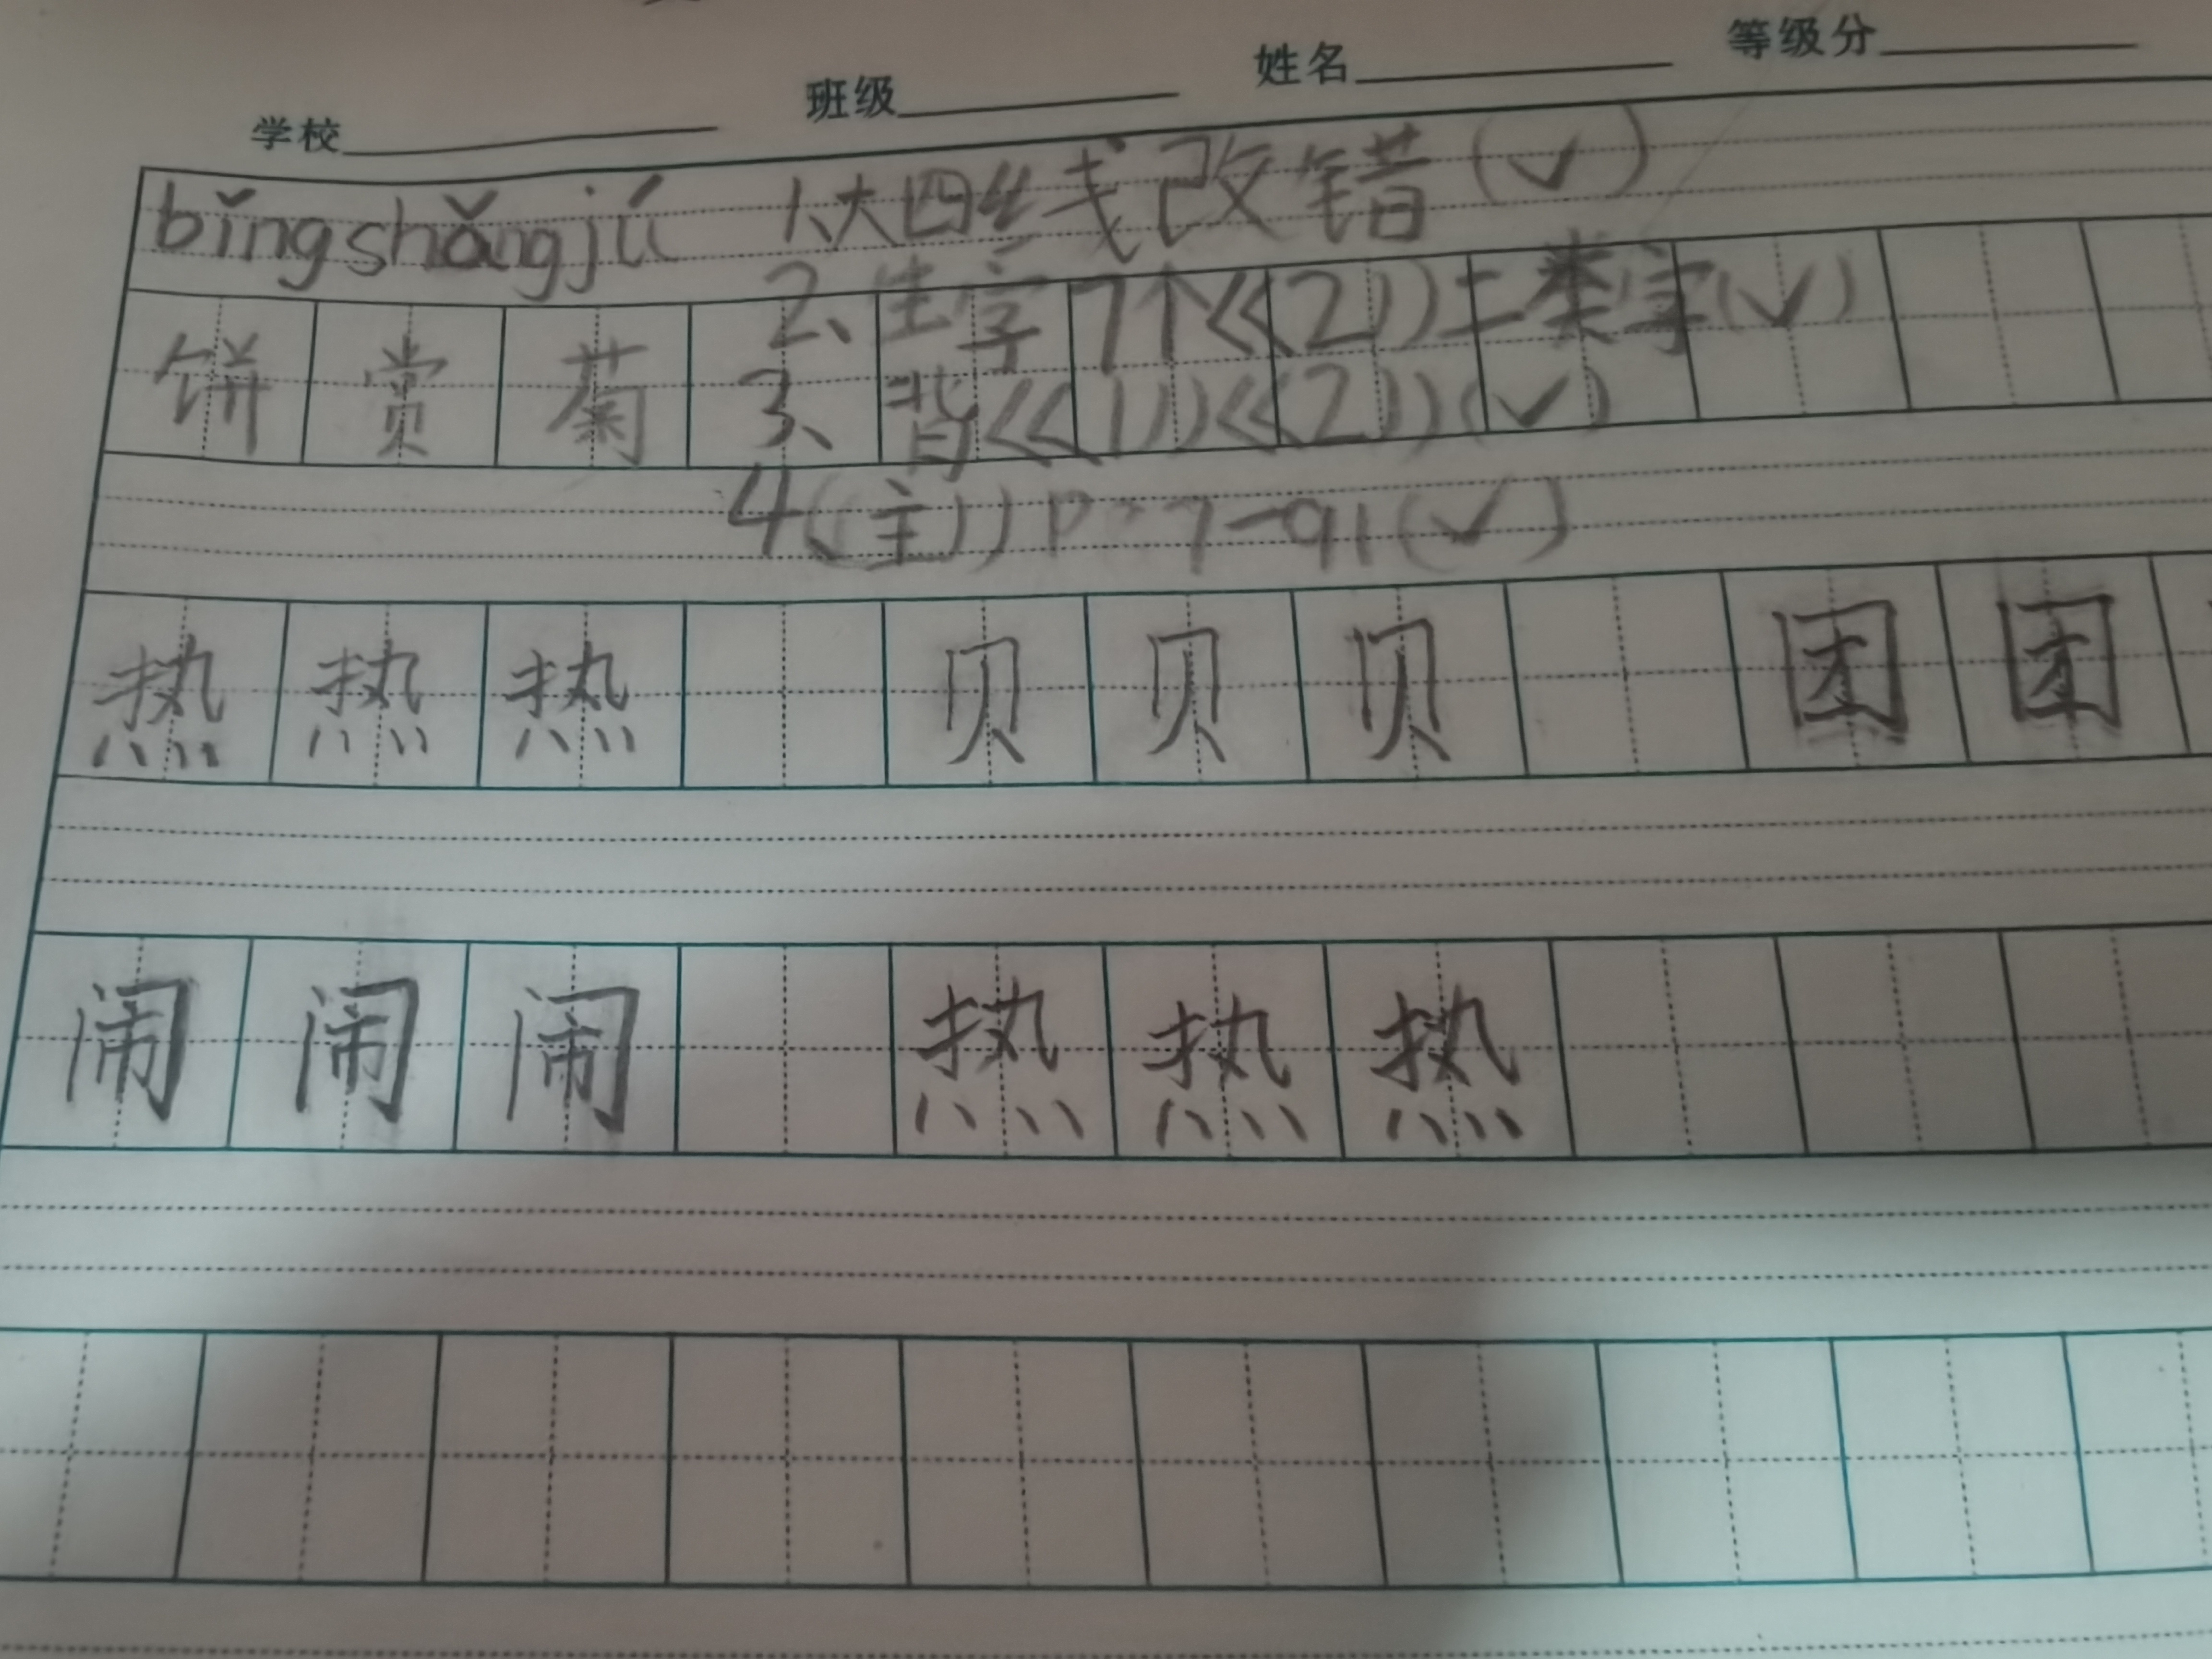 学校 班级 姓名 等级分
bǐng shǎng jú 1、大四线改错(✓)
2、生字7个《(2)》二类字(✓)
饼 赏 菊 3、背《(1)》《(2)》(✓)
4《主》) -91(✓)
热 热 热 贝 贝 贝 团 团
闹 闹 闹 热 热 热